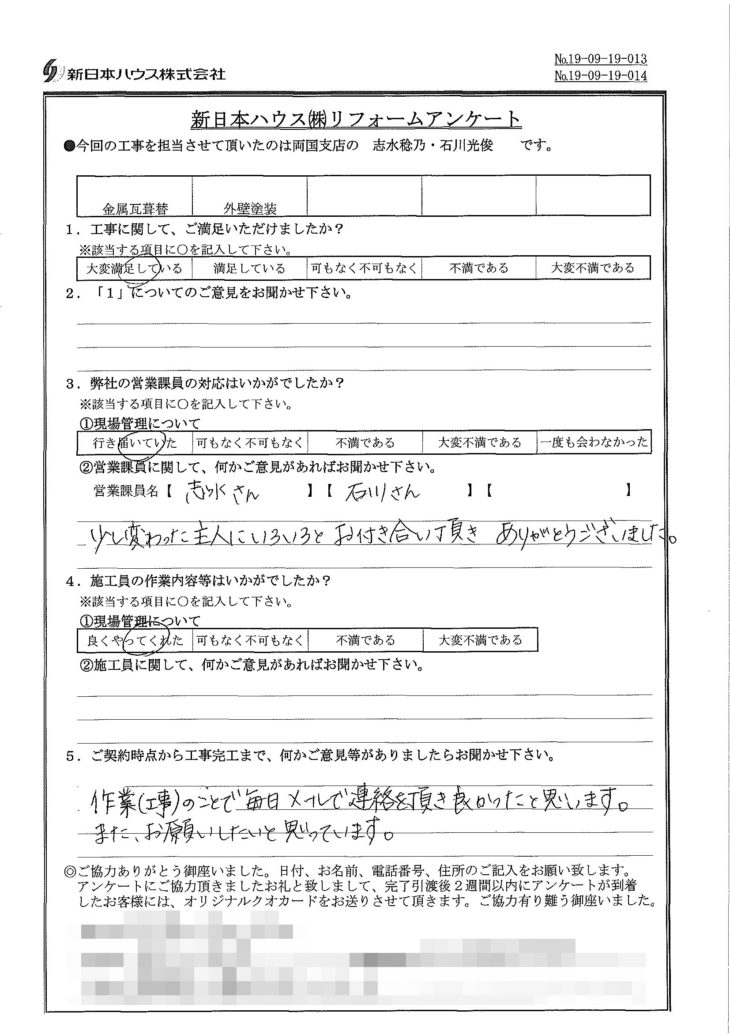 新日本ハウス株式会社
No.19-09-19-013
No.19-09-19-014
新日本ハウス㈱リフォームアンケート
●今回の工事を担当させて頂いたのは両国支店の 志水稔乃・石川光俊 です。
金属瓦葺替 外壁塗装
1．工事に関して、ご満足いただけましたか？
※該当する項目に〇を記入して下さい。
大変満足している 満足している 可もなく不可もなく 不満である 大変不満である
2．「1」についてのご意見をお聞かせ下さい。
3．弊社の営業課員の対応はいかがでしたか？
※該当する項目に〇を記入して下さい。
①現場管理について
行き届いていた 可もなく不可もなく 不満である 大変不満である 一度も会わなかった
②営業課員に関して、何かご意見があればお聞かせ下さい。
営業課員名【 志水さん 】【 石川さん 】【 】
少し変わった主人にいろいろと お付き合い頂き ありがとうございました。
4．施工員の作業内容等はいかがでしたか？
※該当する項目に〇を記入して下さい。
①現場管理について
良くやってくれた 可もなく不可もなく 不満である 大変不満である
②施工員に関して、何かご意見があればお聞かせ下さい。
5．ご契約時点から工事完工まで、何かご意見等がありましたらお聞かせ下さい。
作業(工事)のことで毎日メールで連絡を頂き良かったと思います。
また、お願いしたいと思っています。
◎ご協力ありがとう御座いました。日付、お名前、電話番号、住所のご記入をお願い致します。
アンケートにご協力頂きましたお礼と致しまして、完了引渡後２週間以内にアンケートが到着
したお客様には、オリジナルクオカードをお送りさせて頂きます。ご協力有り難う御座いました。